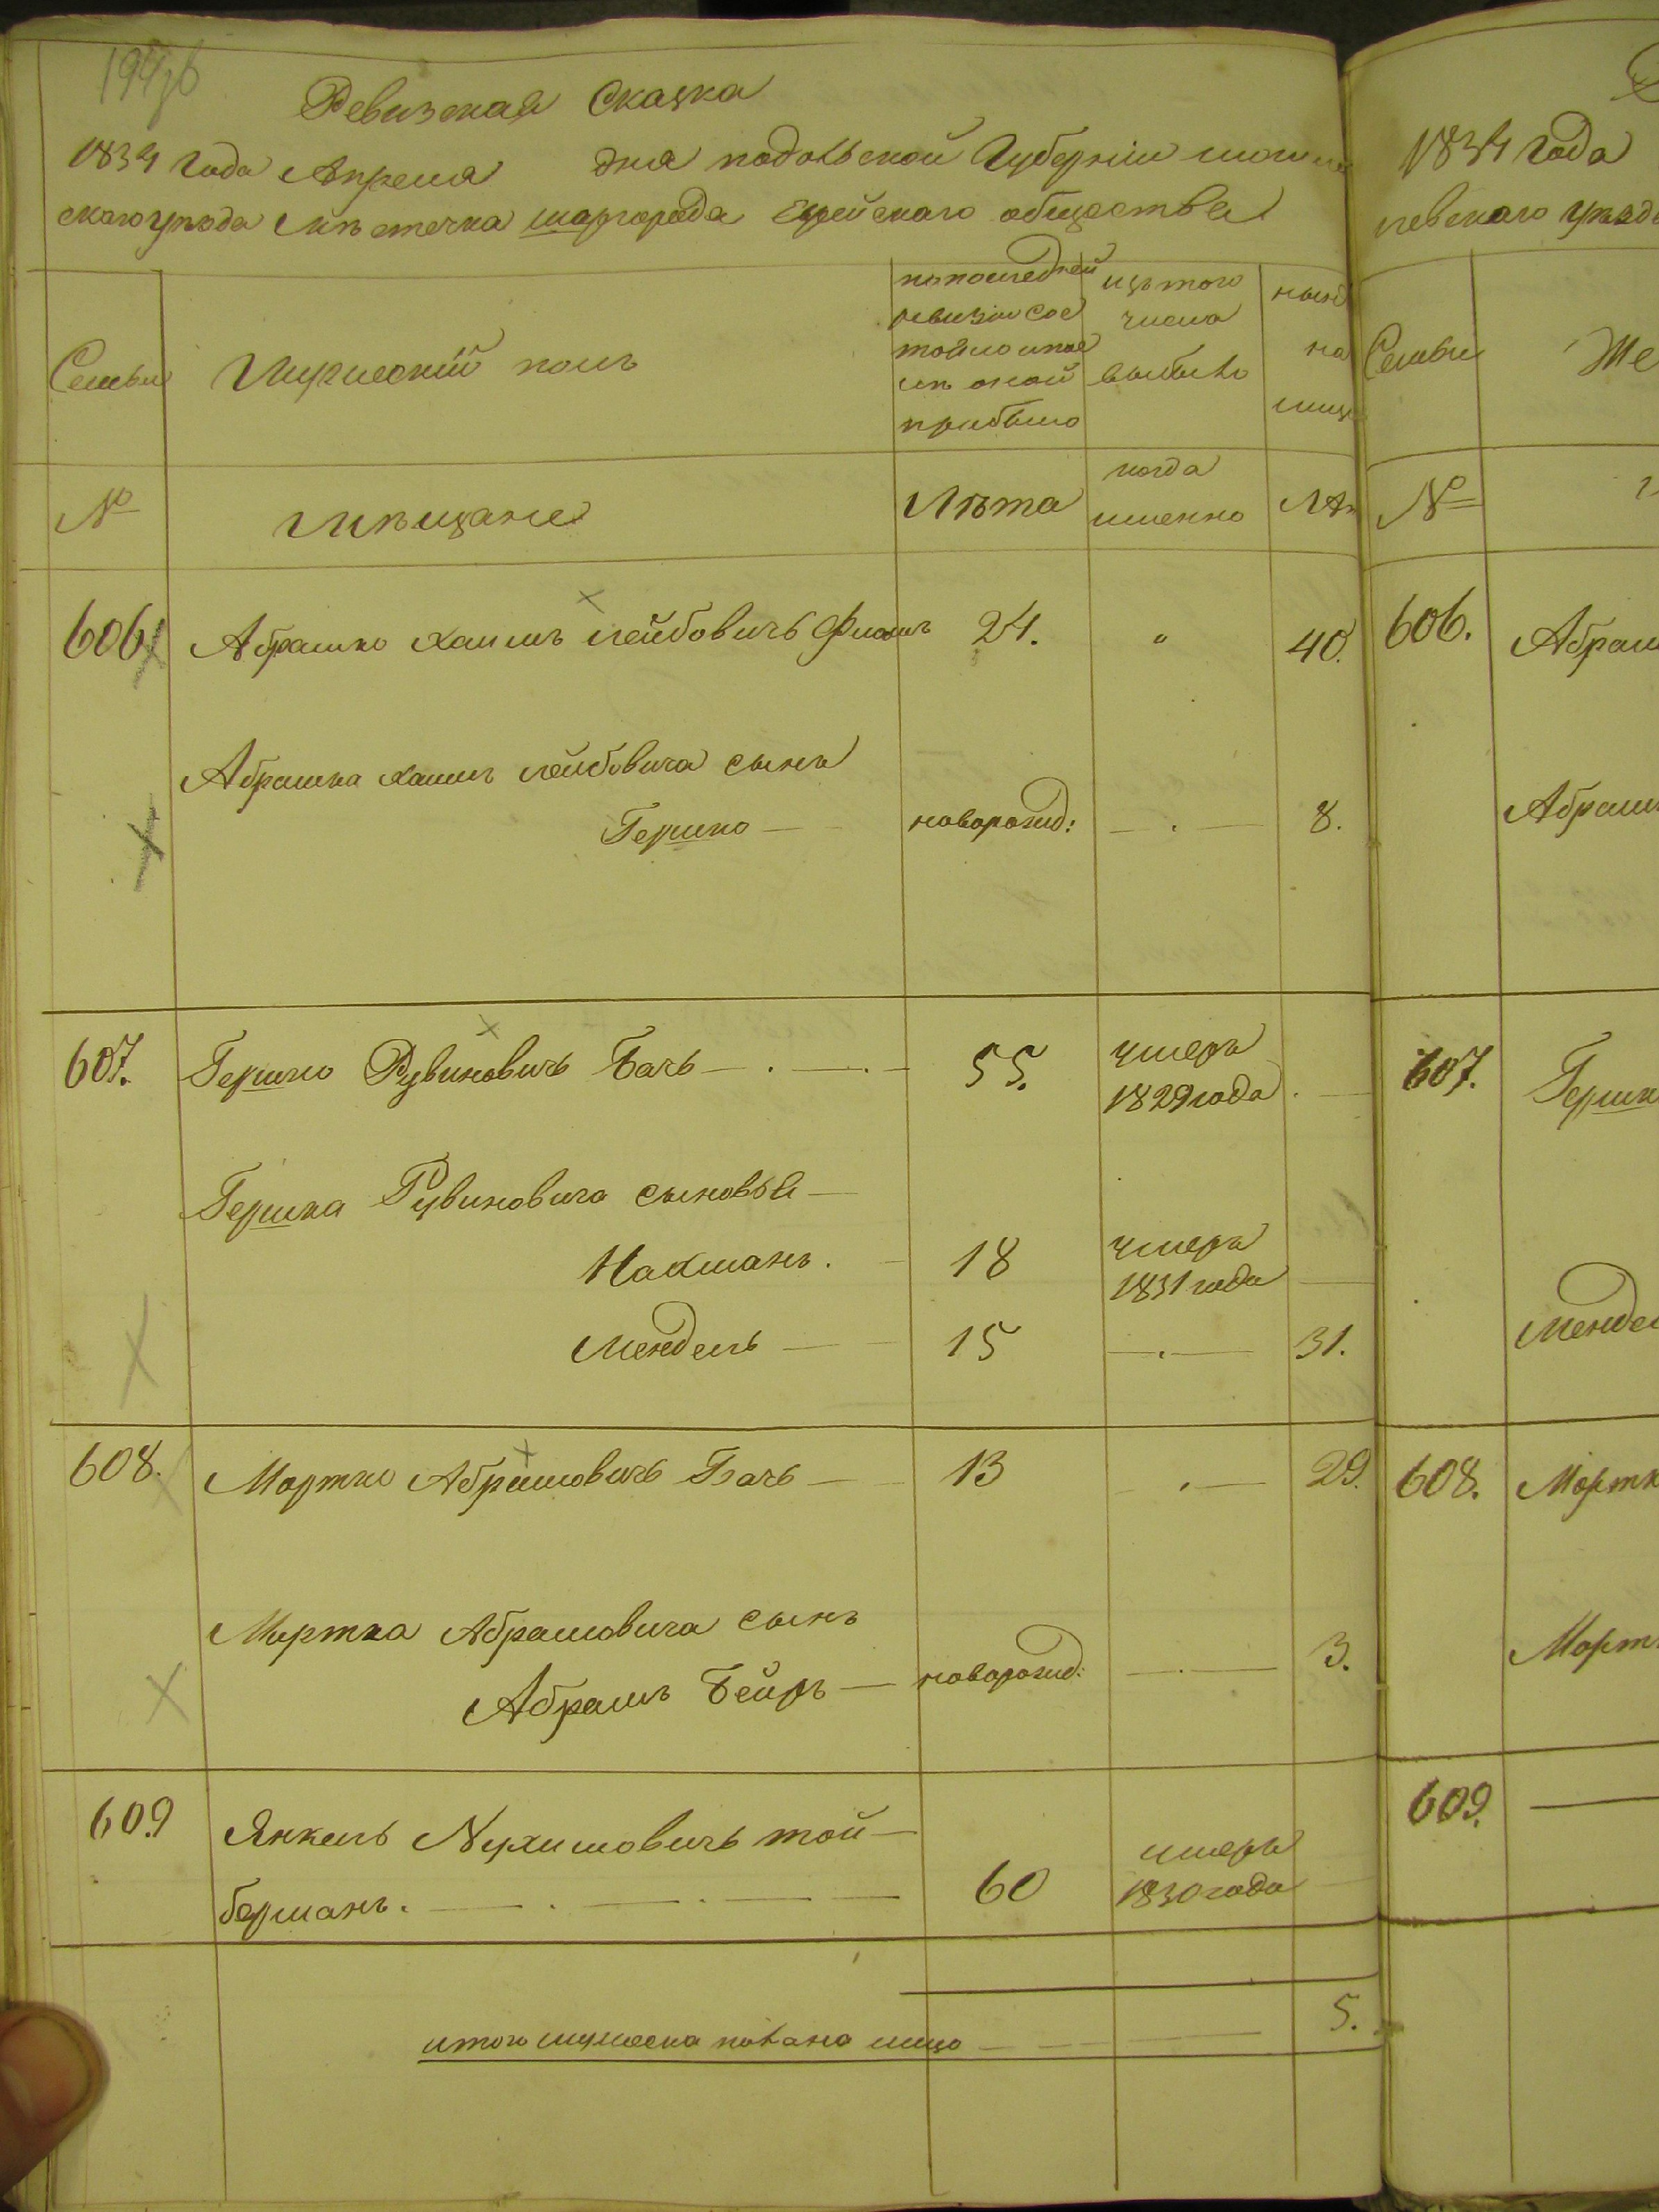 Ревизская Сказка
1834 года Апреля дня подольской Губерніи могиле
скаго уѣзда мѣстечка шаргорода Еврейскаго общества
Семьи
Мужескій полъ
по последней
ревизіи сос
тояло и пос
лѣ оной
прибыло
изъ того
числа
выбыло
нынѣ
на
лицо
№
Мѣщане
Лѣта
когда
именно
Лѣ
606.
Абрамко Хаимъ Лейбовичъ
24.
"
40.
Абрамка Хаимъ Лейбовича сынъ
Гершко
новорожд:
8.
607.
Гершко Рувиновичъ Бачъ
55.
умеръ
1829 года
Гершка Рувиновича сыновья
Нахманъ.
18
умеръ
1831 года
Мендель
15
31.
608.
Мортко Абрамовичъ Бачъ
13
29.
Мортка Абрамовича сынъ
Абрамъ Бейръ
новорожд:
3.
609
Янкель Нухимовичъ той-
берманъ.
60
умеръ
1830 года
итого мужеска пола на лицо
5.
1834 года
левскаго уѣзда
Семьи
Же
№
606.
Абрам
Абрам
607.
Гершк
Мендел
608.
Мортк
Морт
609.